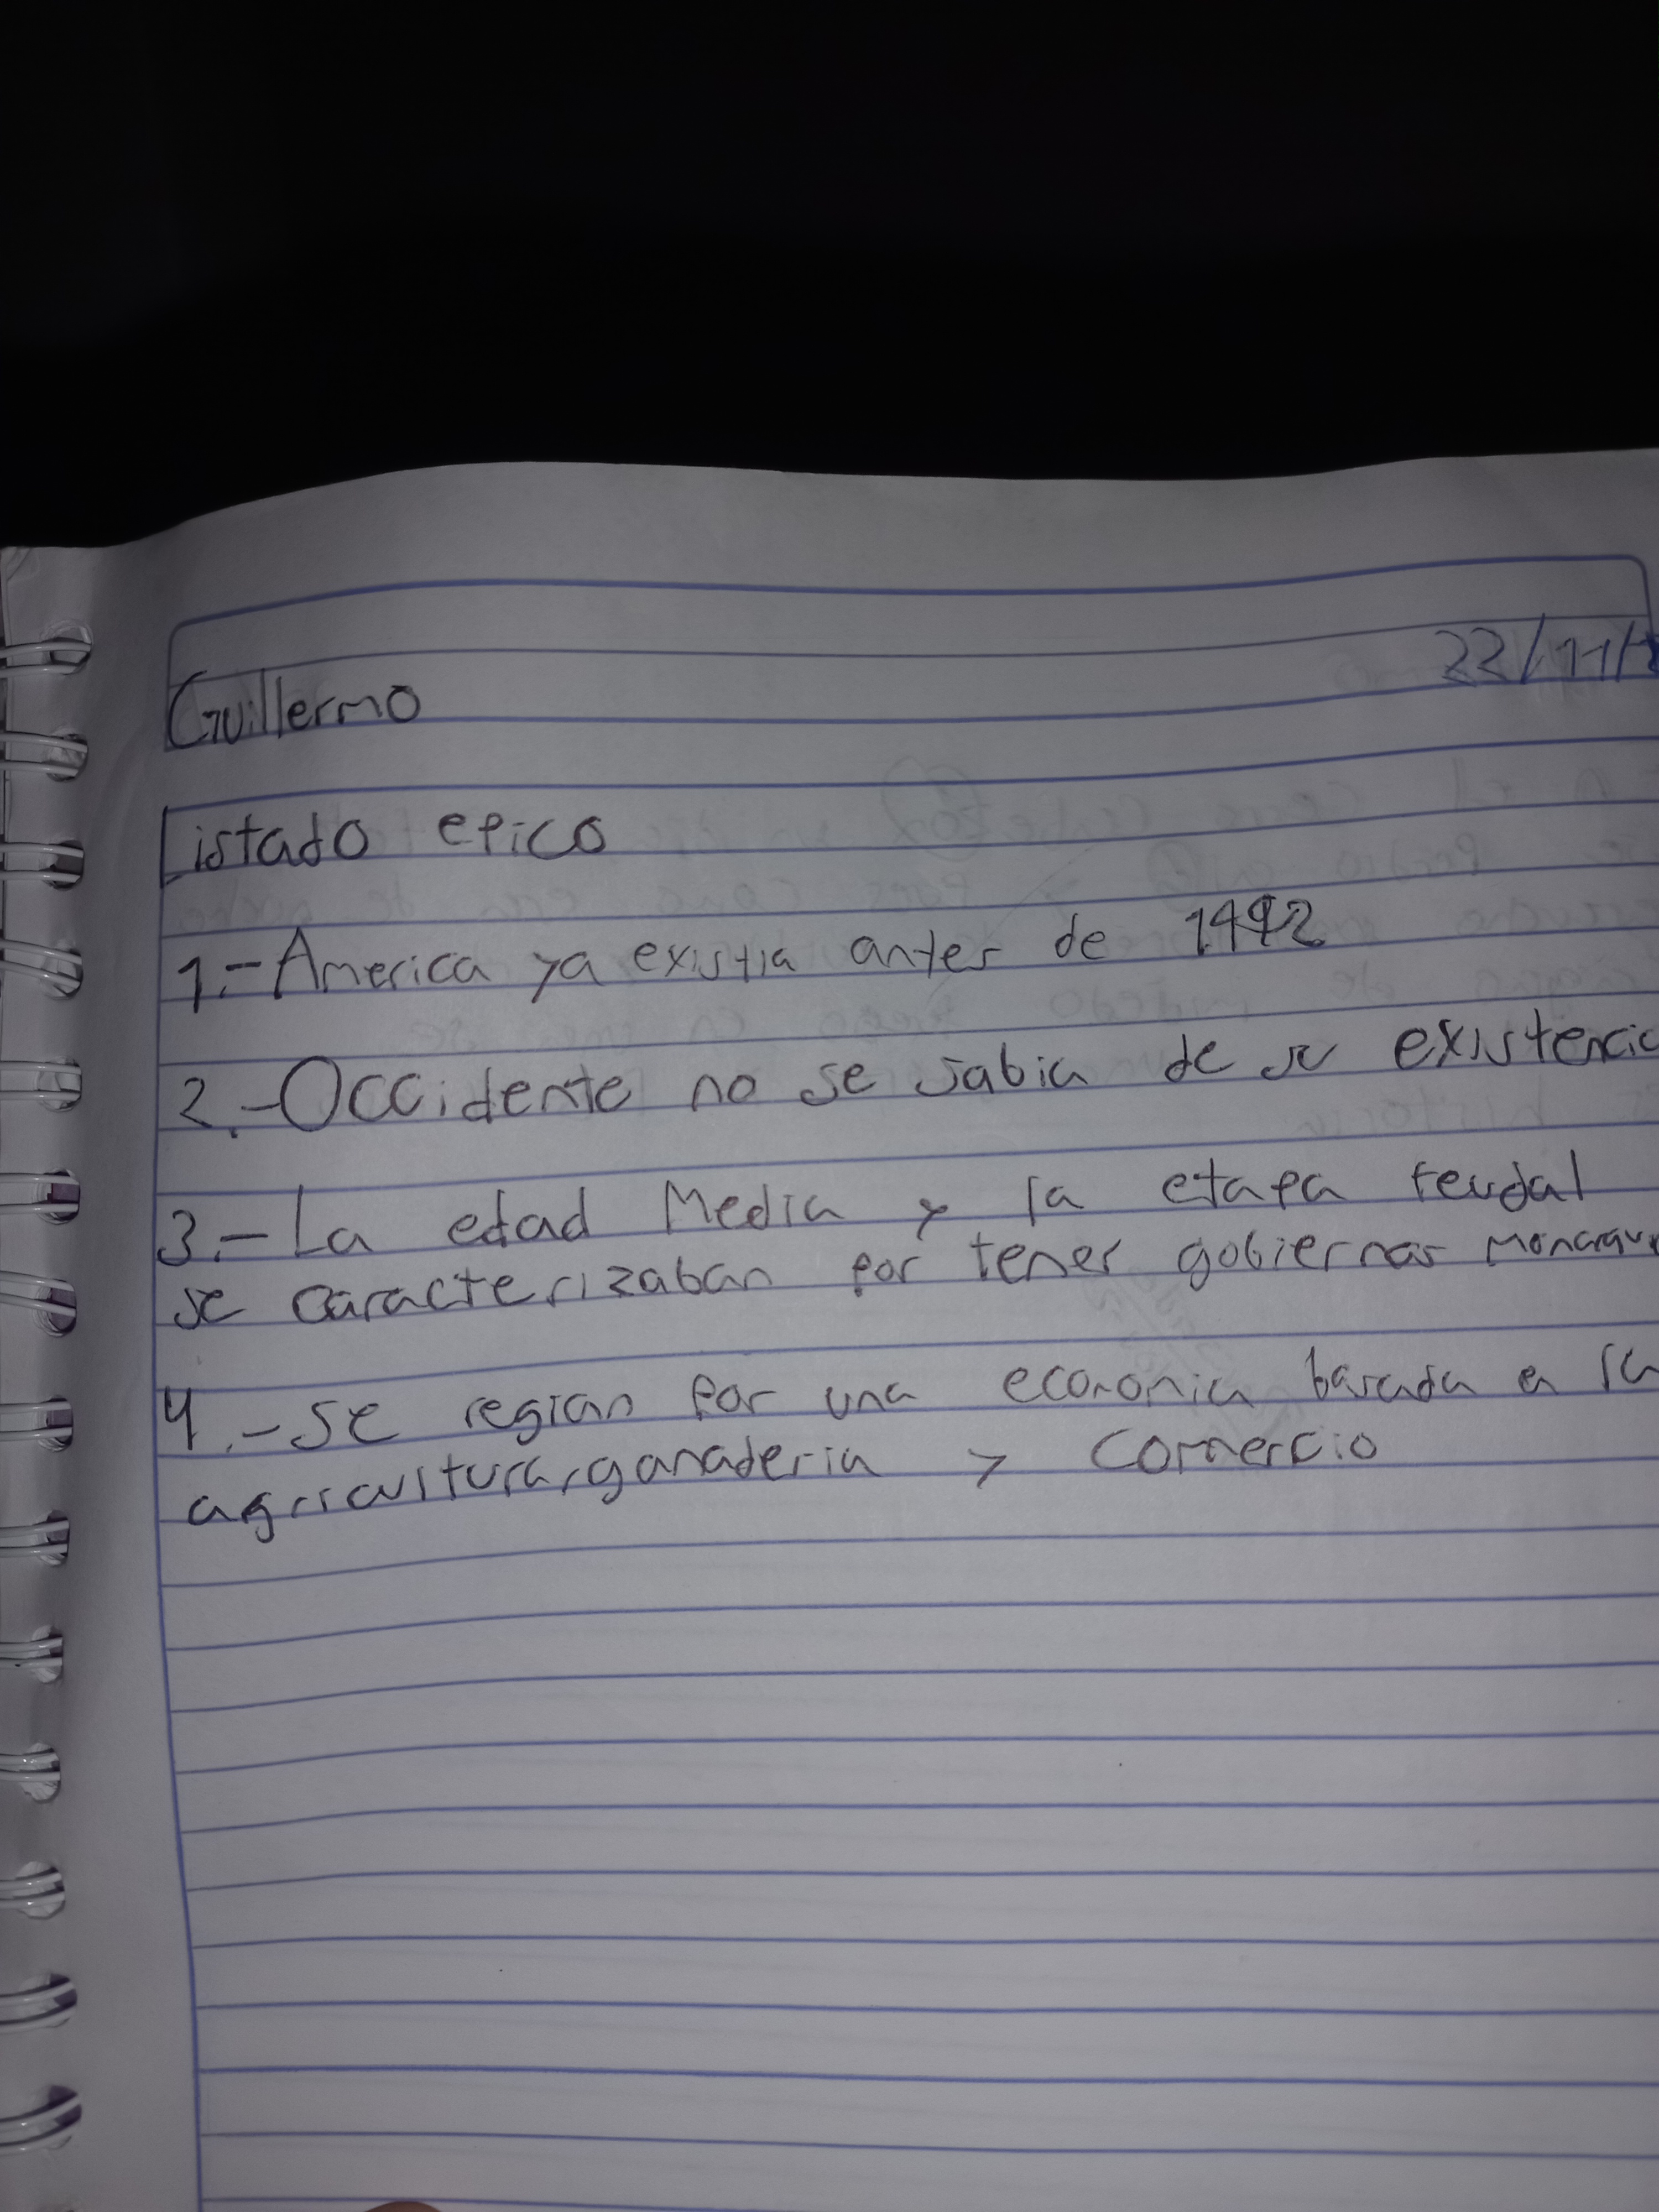 22/11/
Guillermo
Listado epico
1.- America ya existia antes de 1492
2.- Occidente no se sabia de su existencia
3.- La edad Media y la etapa feudal
se caracterizaban por tener gobiernos
4.- Se regian por una economia basada en la
agricultura, ganaderia y comercio